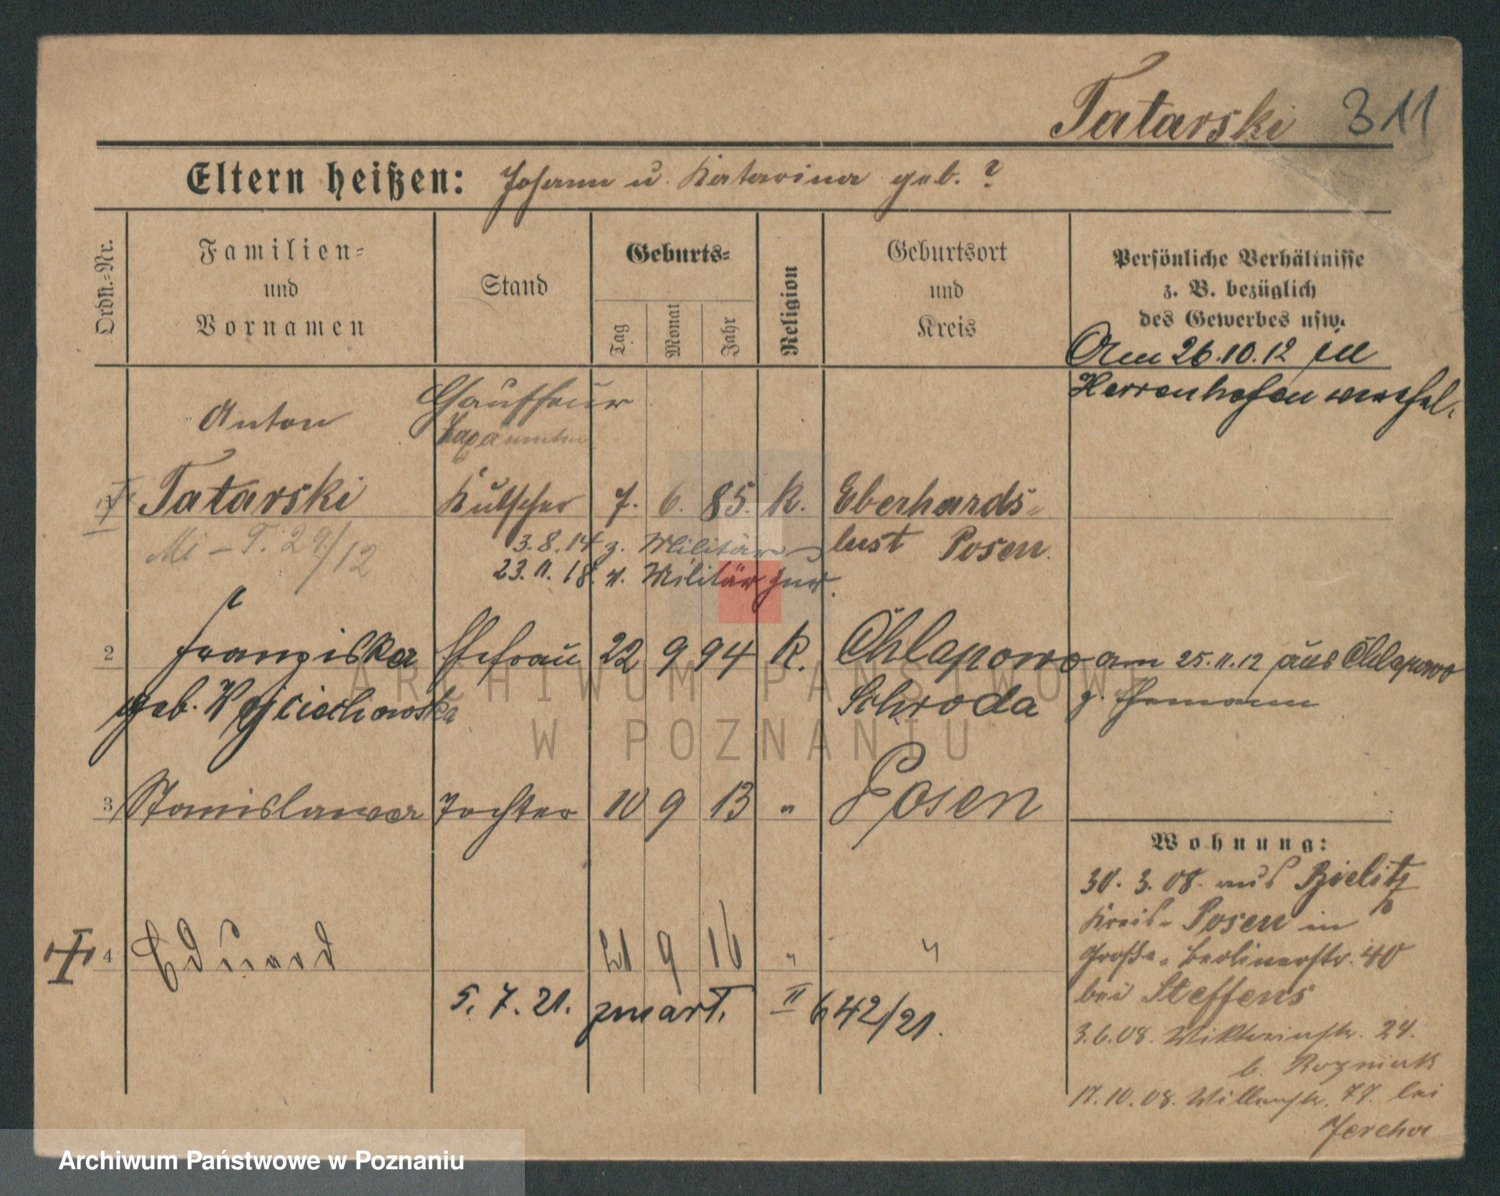 Tatarski 311
Eltern heißen: Johann u. Katarina geb. ?
Ordn.-Nr.
Familien-
und
Vornamen
Stand
Geburts-
Tag
Monat
Jahr
Religion
Geburtsort
und
Kreis
Persönliche Verhältnisse
z. B. bezüglich
des Gewerbes usw.
Am 26.10.12 in
Herrenhofen
Anton Chauffeur
Tatarski Kutscher 7. 6. 85. K. Eberhards-
lust Posen
Mi - T. 29/12
3.8.14 z. Militär
23.11.18. v. Militär zur.
2 Franziska Ehefrau 22 9 94 K. Chlapowo am 25.11.12 aus Chlapowo
geb. Wojciechowska Schroda z. Ehemann
3 Stanislawa Tochter 10 9 13 " Posen
Wohnung:
30. 3. 08. aus Bielitz
Kreis- Posen in
Große- Berlinerstr. 40
bei Steffens
4 Eduard 9 16 " "
5. 7. 21. zmarł. II 642/21.
3.6.08. Wiktoriastr. 24.
b. Rozniak
17.10.08. 77. bei
Jercha
ARCHIWUM PAŃSTWOWE
W POZNANIU
Archiwum Państwowe w Poznaniu